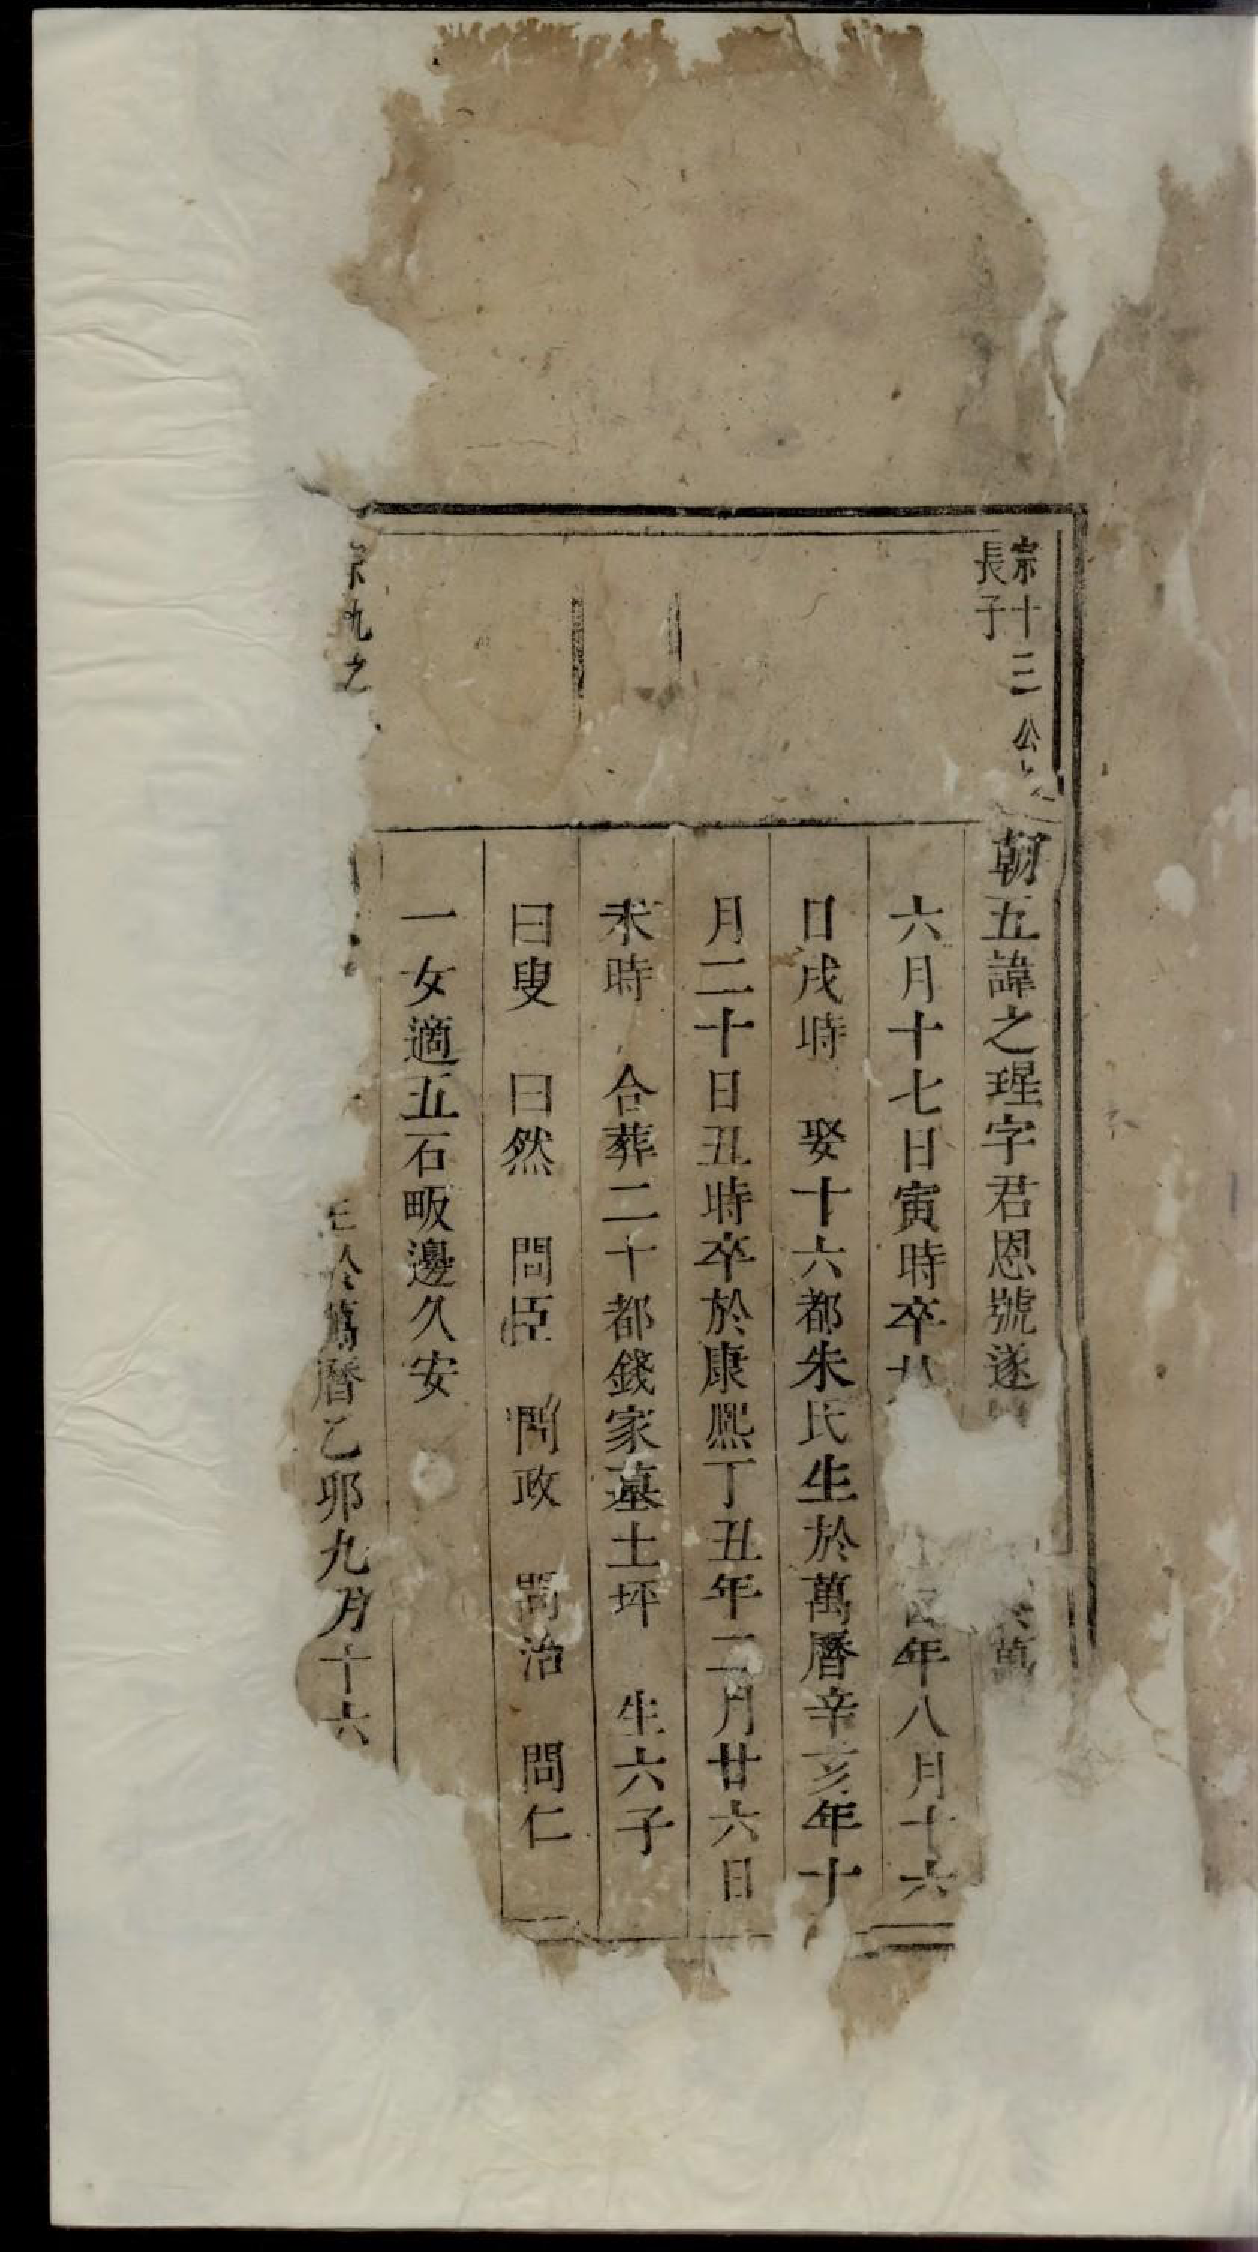 宗十三公之
長子
朝五諱之珵字君恩號遂
萬
六月十七日寅時卒
年八月十六
日戌時 娶十六都朱氏生於萬曆辛亥年十
月二十日丑時卒於康熙丁丑年二月廿六日
未時 合葬二十都錢家墓土坪 生六子
曰叟 曰然 問臣 問政 問治 問仁
一女適五石畈邊久安
宗九之
生於萬曆乙卯九月十六